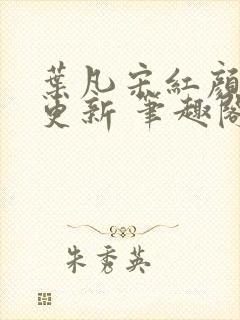 葉凡宋紅顏
更新 筆趣閣
朱秀英